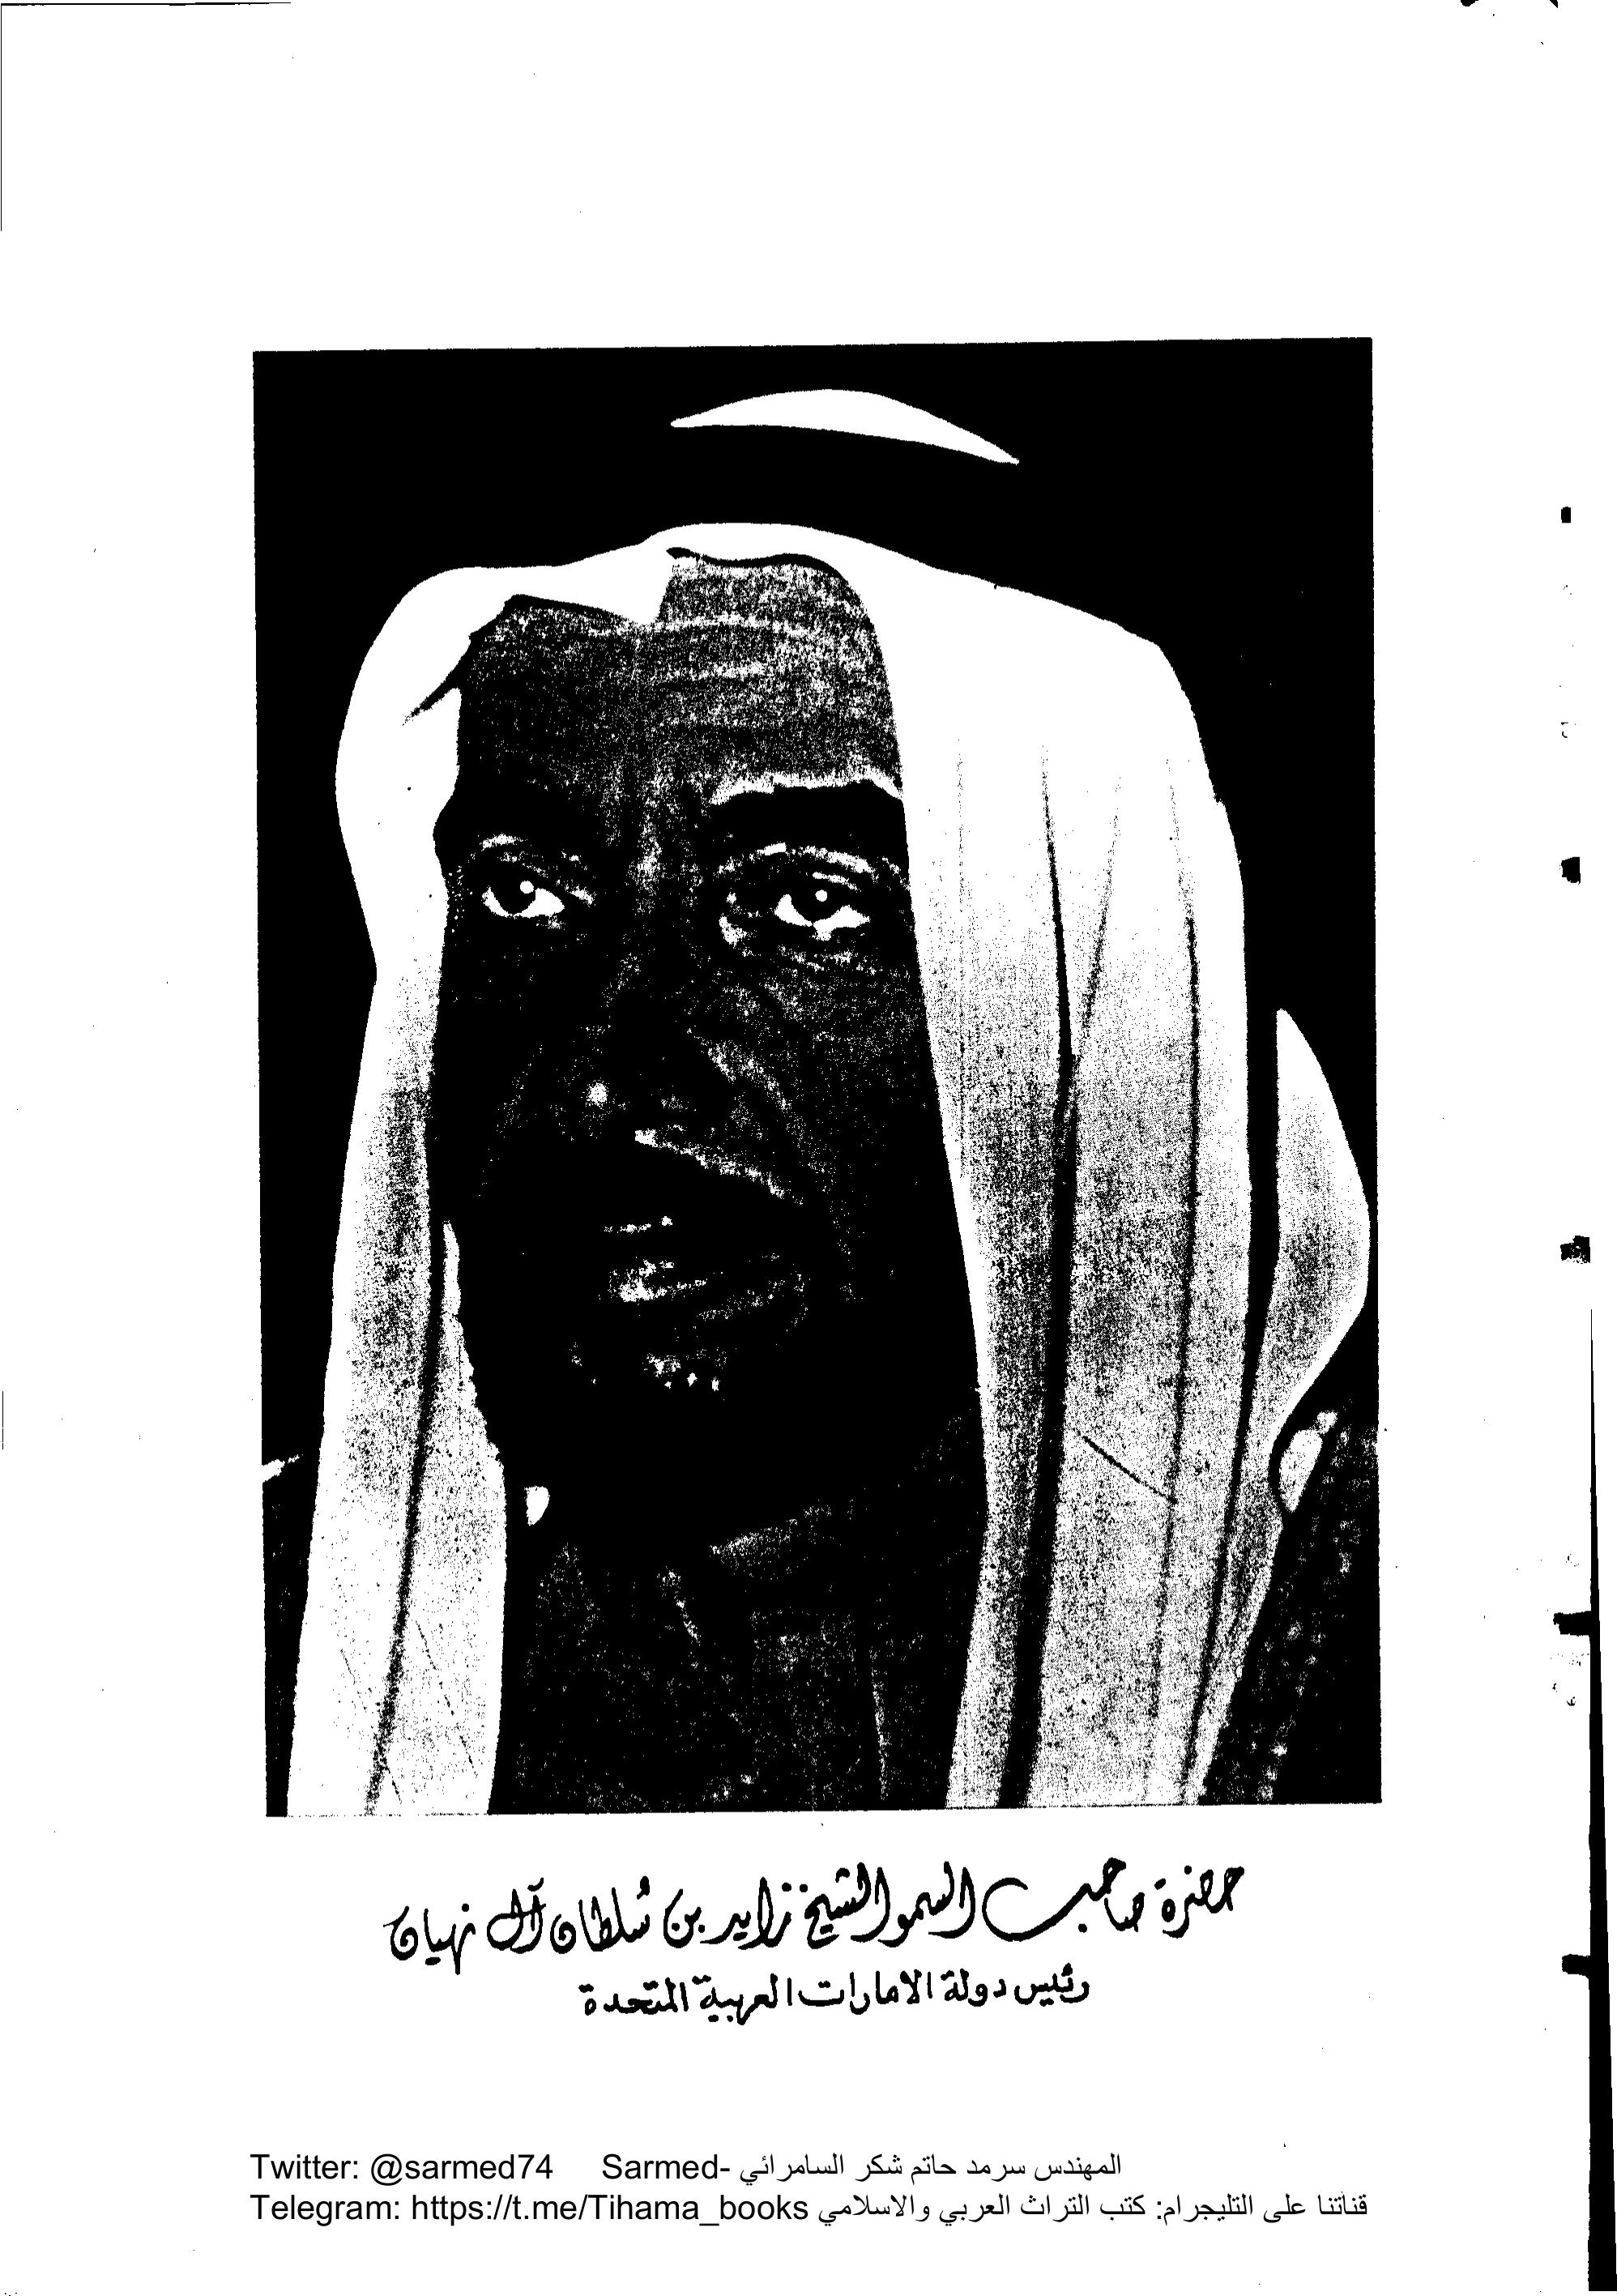 حضرة صاحب السمو الشيخ زايد بن سُلطان آل نهيان
رئيس دولة الامارات العربية المتحدة
Twitter: @sarmed74 Sarmed- المهندس سرمد حاتم شكر السامرائي
Telegram: https://t.me/Tihama_books قناتنا على التليجرام: كتب التراث العربي والاسلامي